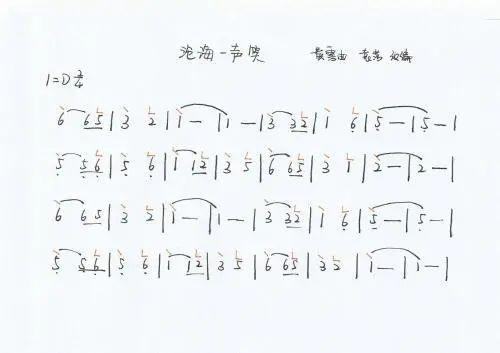 沧海一声笑 黄霑曲
1=D 2/4
6 65|3 2|1 —|1 —|3 32|1 6|5 —|5 —|
5 56|5 6|1 12|3 5|6 65|3 1|2 —|2 —|
6 65|3 2|1 —|1 —|3 32|1 6|5 —|5 —|
5 56|5 6|1 12|3 5|6 65|3 2|1 —|1 —|